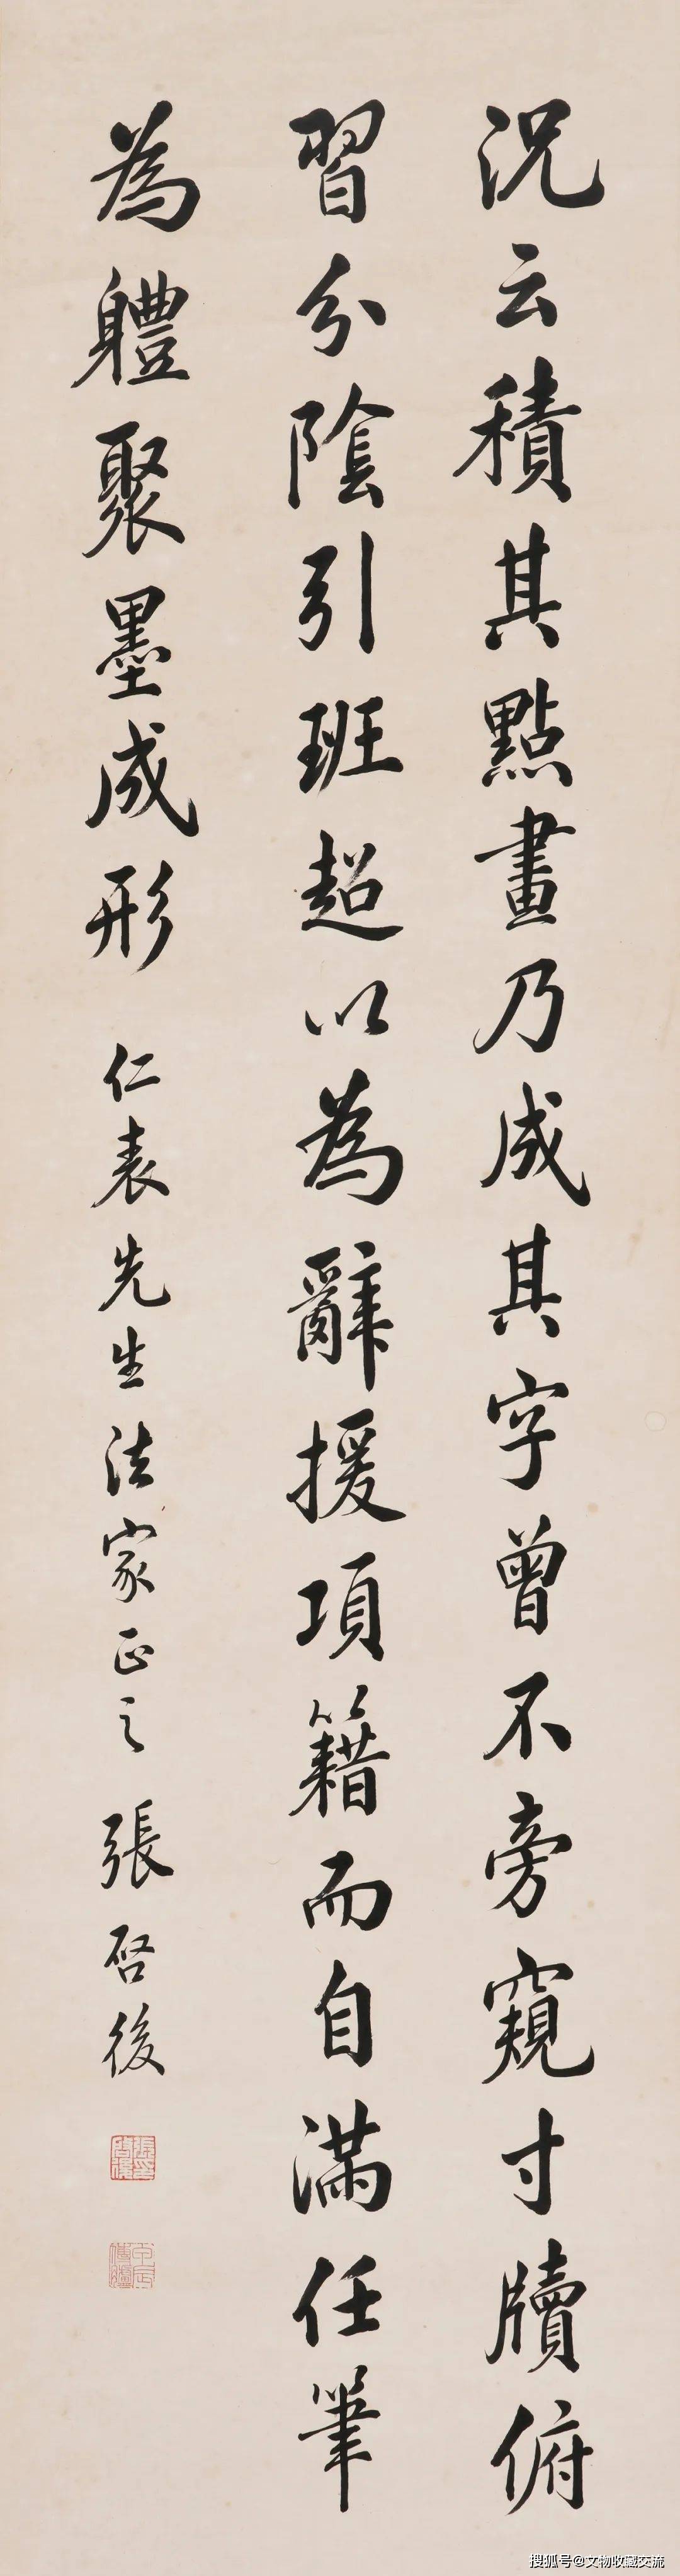 況云積其點畫乃成其字曾不旁窺寸牘俯
習分陰引班超以為辭援項籍而自滿任筆
為軆聚墨成形
仁表先生法家正之 張啓後
張啓後印
搜狐号@文物收藏交流